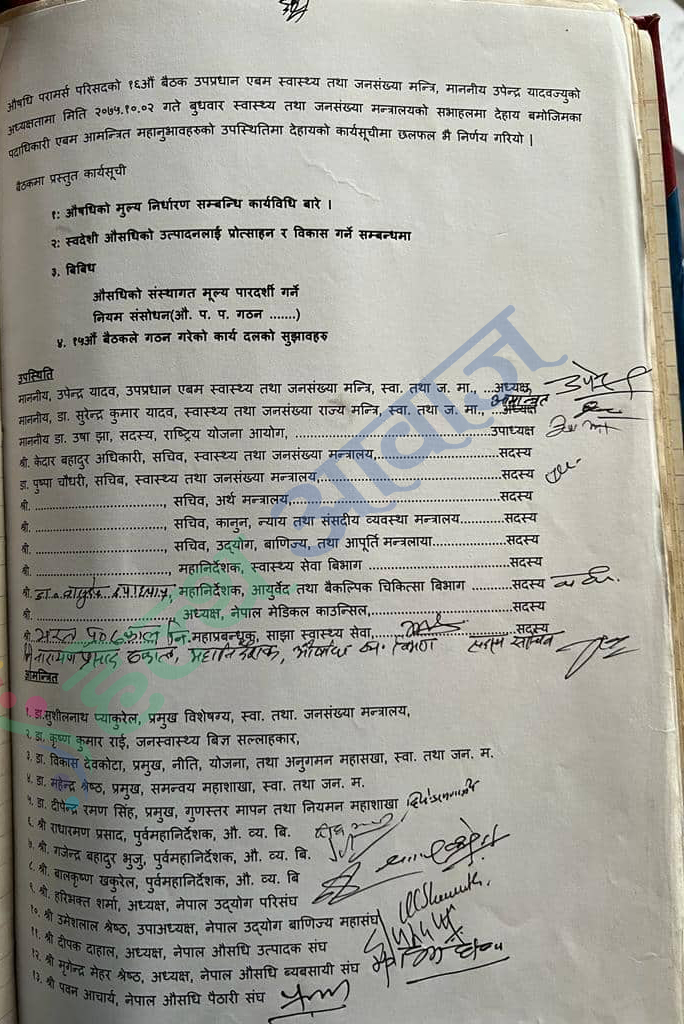 औषधि परामर्स परिसदको १६औं बैठक उपप्रधान एबम स्वास्थ्य तथा जनसंख्या मन्त्रि, माननीय उपेन्द्र यादवज्युको
अध्यक्षतामा मिति २०७५.१०.०२ गते बुधवार स्वास्थ्य तथा जनसंख्या मन्त्रालयको सभाहलमा देहाय बमोजिमका
पदाधिकारी एबम आमन्त्रित महानुभावहरुको उपस्थितिमा देहायको कार्यसूचीमा छलफल भै निर्णय गरियो |
बैठकमा प्रस्तुत कार्यसूची
१: औषधिको मुल्य निर्धारण सम्बन्धि कार्यविधि बारे ।
२: स्वदेशी औसधिको उत्पादनलाई प्रोत्साहन र विकास गर्ने सम्बन्धमा
३. बिबिध
औसधिको संस्थागत मूल्य पारदर्शी गर्ने
नियम संसोधन(औ. प. प. गठन .......)
४. १५औं बैठकले गठन गरेको कार्य दलको सुझावहरु
उपस्थिति
माननीय, उपेन्द्र यादव, उपप्रधान एबम स्वास्थ्य तथा जनसंख्या मन्त्रि, स्वा. तथा ज. मा., ...अध्यक्ष
आमन्त्रित
माननीय, डा. सुरेन्द्र कुमार यादव, स्वास्थ्य तथा जनसंख्या राज्य मन्त्रि, स्वा. तथा ज. मा., ..अध्यक्ष
माननीय डा. उषा झा, सदस्य, राष्ट्रिय योजना आयोग, ...............................................उपाध्यक्ष
श्री. केदार बहादुर अधिकारी, सचिव, स्वास्थ्य तथा जनसंख्या मन्त्रालय,..............................सदस्य
डा. पुष्पा चौधरी, सचिब, स्वास्थ्य तथा जनसंख्या मन्त्रालय,.........................................सदस्य
श्री. ........................, सचिव, अर्थ मन्त्रालय,................................................सदस्य
श्री. ........................, सचिव, कानुन, न्याय तथा संसदीय व्यवस्था मन्त्रालय..........सदस्य
श्री. ........................, सचिव, उद्योग, बाणिज्य, तथा आपूर्ति मन्त्रलाया...............सदस्य
श्री. ........................, महानिर्देशक, स्वास्थ्य सेवा बिभाग ...............................सदस्य
श्री. डा. , महानिर्देशक, आयुर्वेद तथा बैकल्पिक चिकित्सा बिभाग .......सदस्य
श्री. ........................, अध्यक्ष, नेपाल मेडिकल काउन्सिल,...............................सदस्य
श्री. महाप्रबन्धक, साझा स्वास्थ्य सेवा, सदस्य
नारायण प्रसाद ढकाल, महानिर्देशक,
आमन्त्रित
१. डा.सुशीलनाथ प्याकुरेल, प्रमुख विशेषग्य, स्वा. तथा. जनसंख्या मन्त्रालय,
२. डा. कृष्ण कुमार राई, जनस्वास्थ्य बिज्ञ सल्लाहकार,
३. डा. विकास देवकोटा, प्रमुख, नीति, योजना, तथा अनुगमन महासखा, स्वा. तथा जन. म.
४. डा. महेन्द्र श्रेष्ठ, प्रमुख, समन्वय महाशाखा, स्वा. तथा जन. म.
५. डा. दीपेन्द्र रमण सिंह, प्रमुख, गुणस्तर मापन तथा नियमन महाशाखा
६. श्री राधारमण प्रसाद, पुर्वमहानिर्देशक, औ. व्य. बि.
७. श्री. गजेन्द्र बहादुर भुजु, पुर्वमहानिर्देशक, औ. व्य. बि.
८. श्री. बालकृष्ण खकुरेल, पुर्वमहानिर्देशक, औ. व्य. बि
९. श्री. हरिभक्त शर्मा, अध्यक्ष, नेपाल उद्योग परिसंघ
१०. श्री उमेशलाल श्रेष्ठ, उपाअध्यक्ष, नेपाल उद्योग बाणिज्य महासंघ
११. श्री दीपक दाहाल, अध्यक्ष, नेपाल औसधि उत्पादक संघ
१२. श्री मृगेन्द्र मेहर श्रेष्ठ, अध्यक्ष, नेपाल औसधि ब्यबसायी संघ
१३. श्री पवन आचार्य, नेपाल औसधि पैठारी संघ